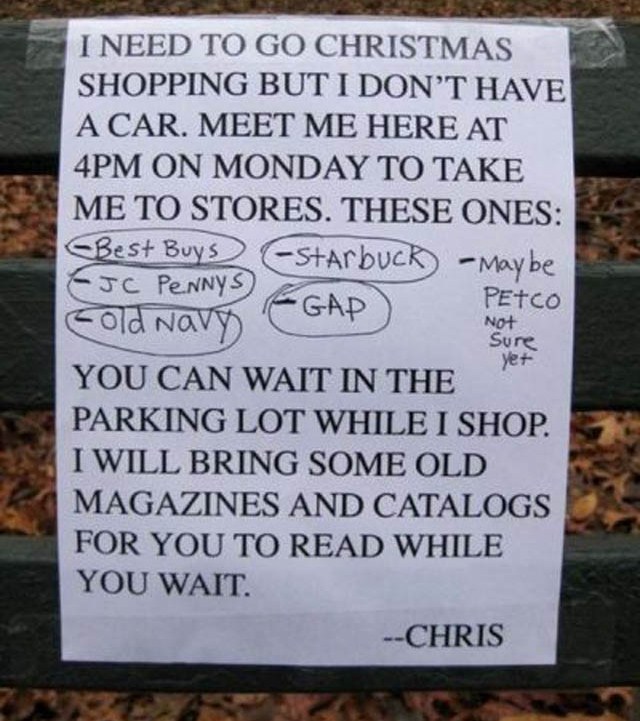 I NEED TO GO CHRISTMAS
SHOPPING BUT I DON'T HAVE
A CAR. MEET ME HERE AT
4PM ON MONDAY TO TAKE
ME TO STORES. THESE ONES:
-Best Buys
-JC PeNNYS
-Old Navy
-StArbuck
-GAP
-Maybe
PEtco
Not
Sure
yet
YOU CAN WAIT IN THE
PARKING LOT WHILE I SHOP.
I WILL BRING SOME OLD
MAGAZINES AND CATALOGS
FOR YOU TO READ WHILE
YOU WAIT.
--CHRIS